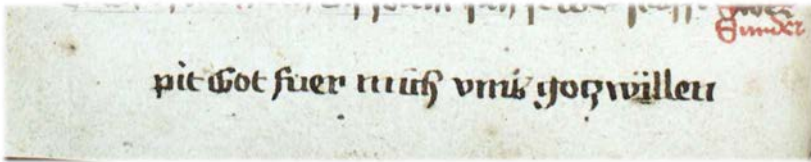 Sunder
pit Got fuer mich vmb gotz willen